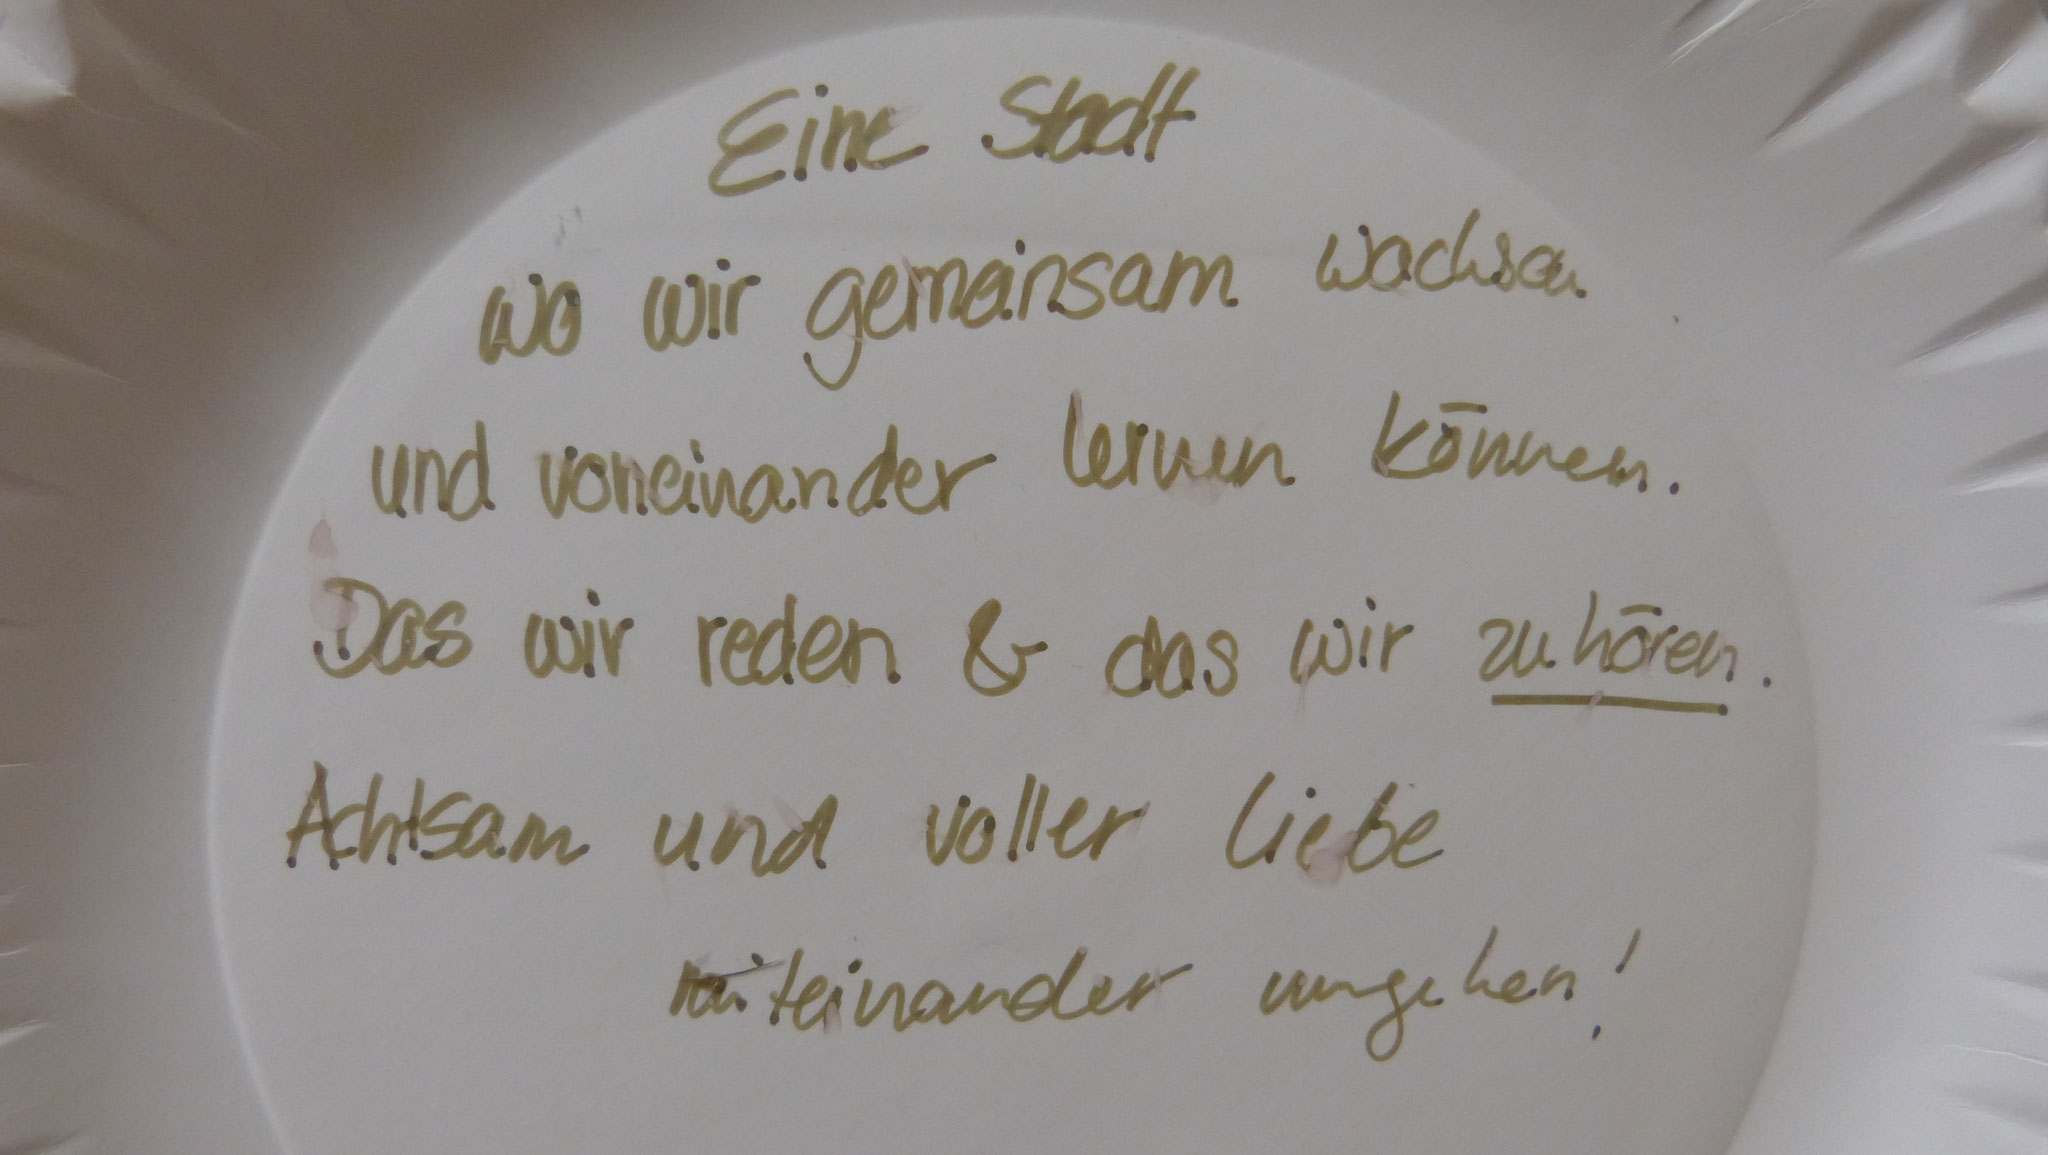 Eine Stadt
wo wir gemeinsam wachsen
und voneinander lernen können.
Das wir reden & das wir zuhören.
Achtsam und voller Liebe
miteinander umgehen!